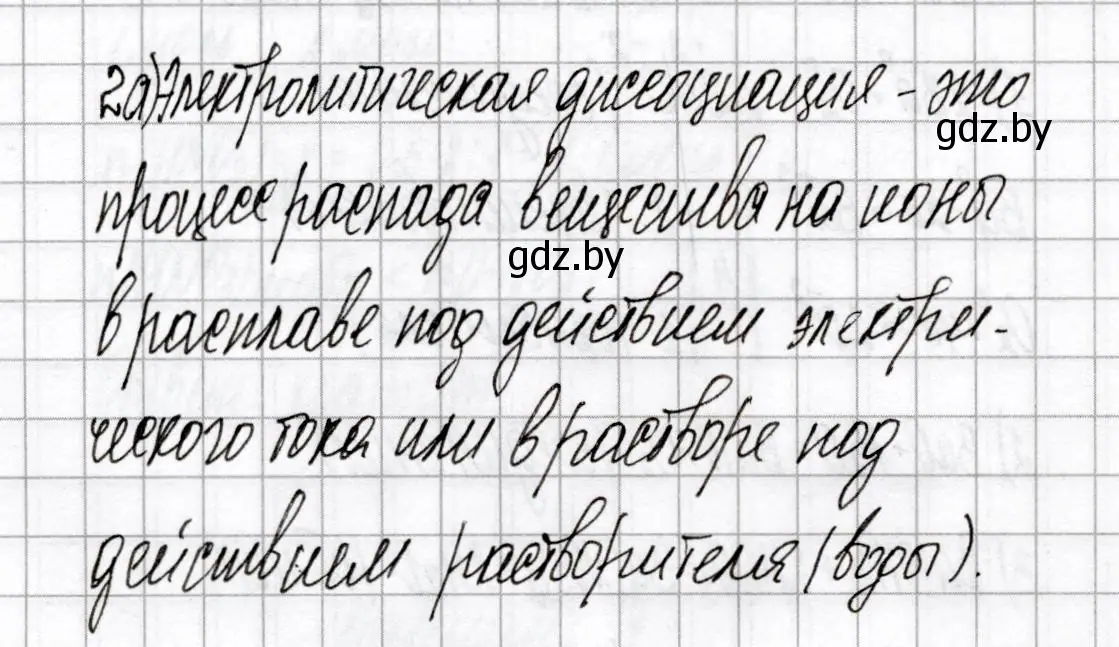 2а) Электролитическая диссоциация - это
gdz.by
процесс распада вещества на ионы
gdz.by
в расплаве под действием электри-
ческого тока или в растворе под
действием растворителя (воды).